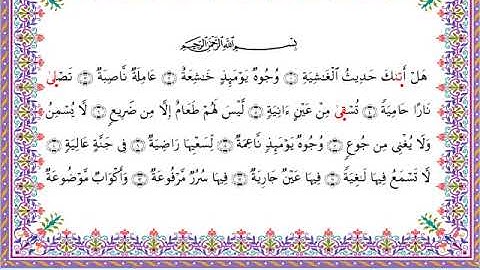 بِسْمِ ٱللَّهِ ٱلرَّحْمَٰنِ ٱلرَّحِيمِ
هَلْ أَتَىٰكَ حَدِيثُ ٱلْغَٰشِيَةِ ۝ وُجُوهٌ يَوْمَئِذٍ خَٰشِعَةٌ ۝ عَامِلَةٌ نَّاصِبَةٌ ۝ تَصْلَىٰ
نَارًا حَامِيَةً ۝ تُسْقَىٰ مِنْ عَيْنٍ ءَانِيَةٍ ۝ لَّيْسَ لَهُمْ طَعَامٌ إِلَّا مِن ضَرِيعٍ ۝ لَّا يُسْمِنُ
وَلَا يُغْنِى مِن جُوعٍ ۝ وُجُوهٌ يَوْمَئِذٍ نَّاعِمَةٌ ۝ لِّسَعْيِهَا رَاضِيَةٌ ۝ فِى جَنَّةٍ عَالِيَةٍ ۝
لَّا تَسْمَعُ فِيهَا لَٰغِيَةً ۝ فِيهَا عَيْنٌ جَارِيَةٌ ۝ فِيهَا سُرُرٌ مَّرْفُوعَةٌ ۝ وَأَكْوَابٌ مَّوْضُوعَةٌ